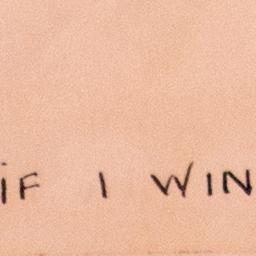 iF I WIN